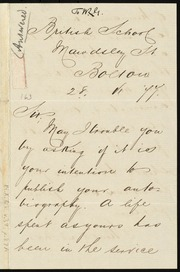 (Answered)
British School
Mawdsley St
Bolton
28 77
Sir
May I trouble you
by asking if it is
your intention to
publish your auto-
biography. A life
spent as yours has
been in the service